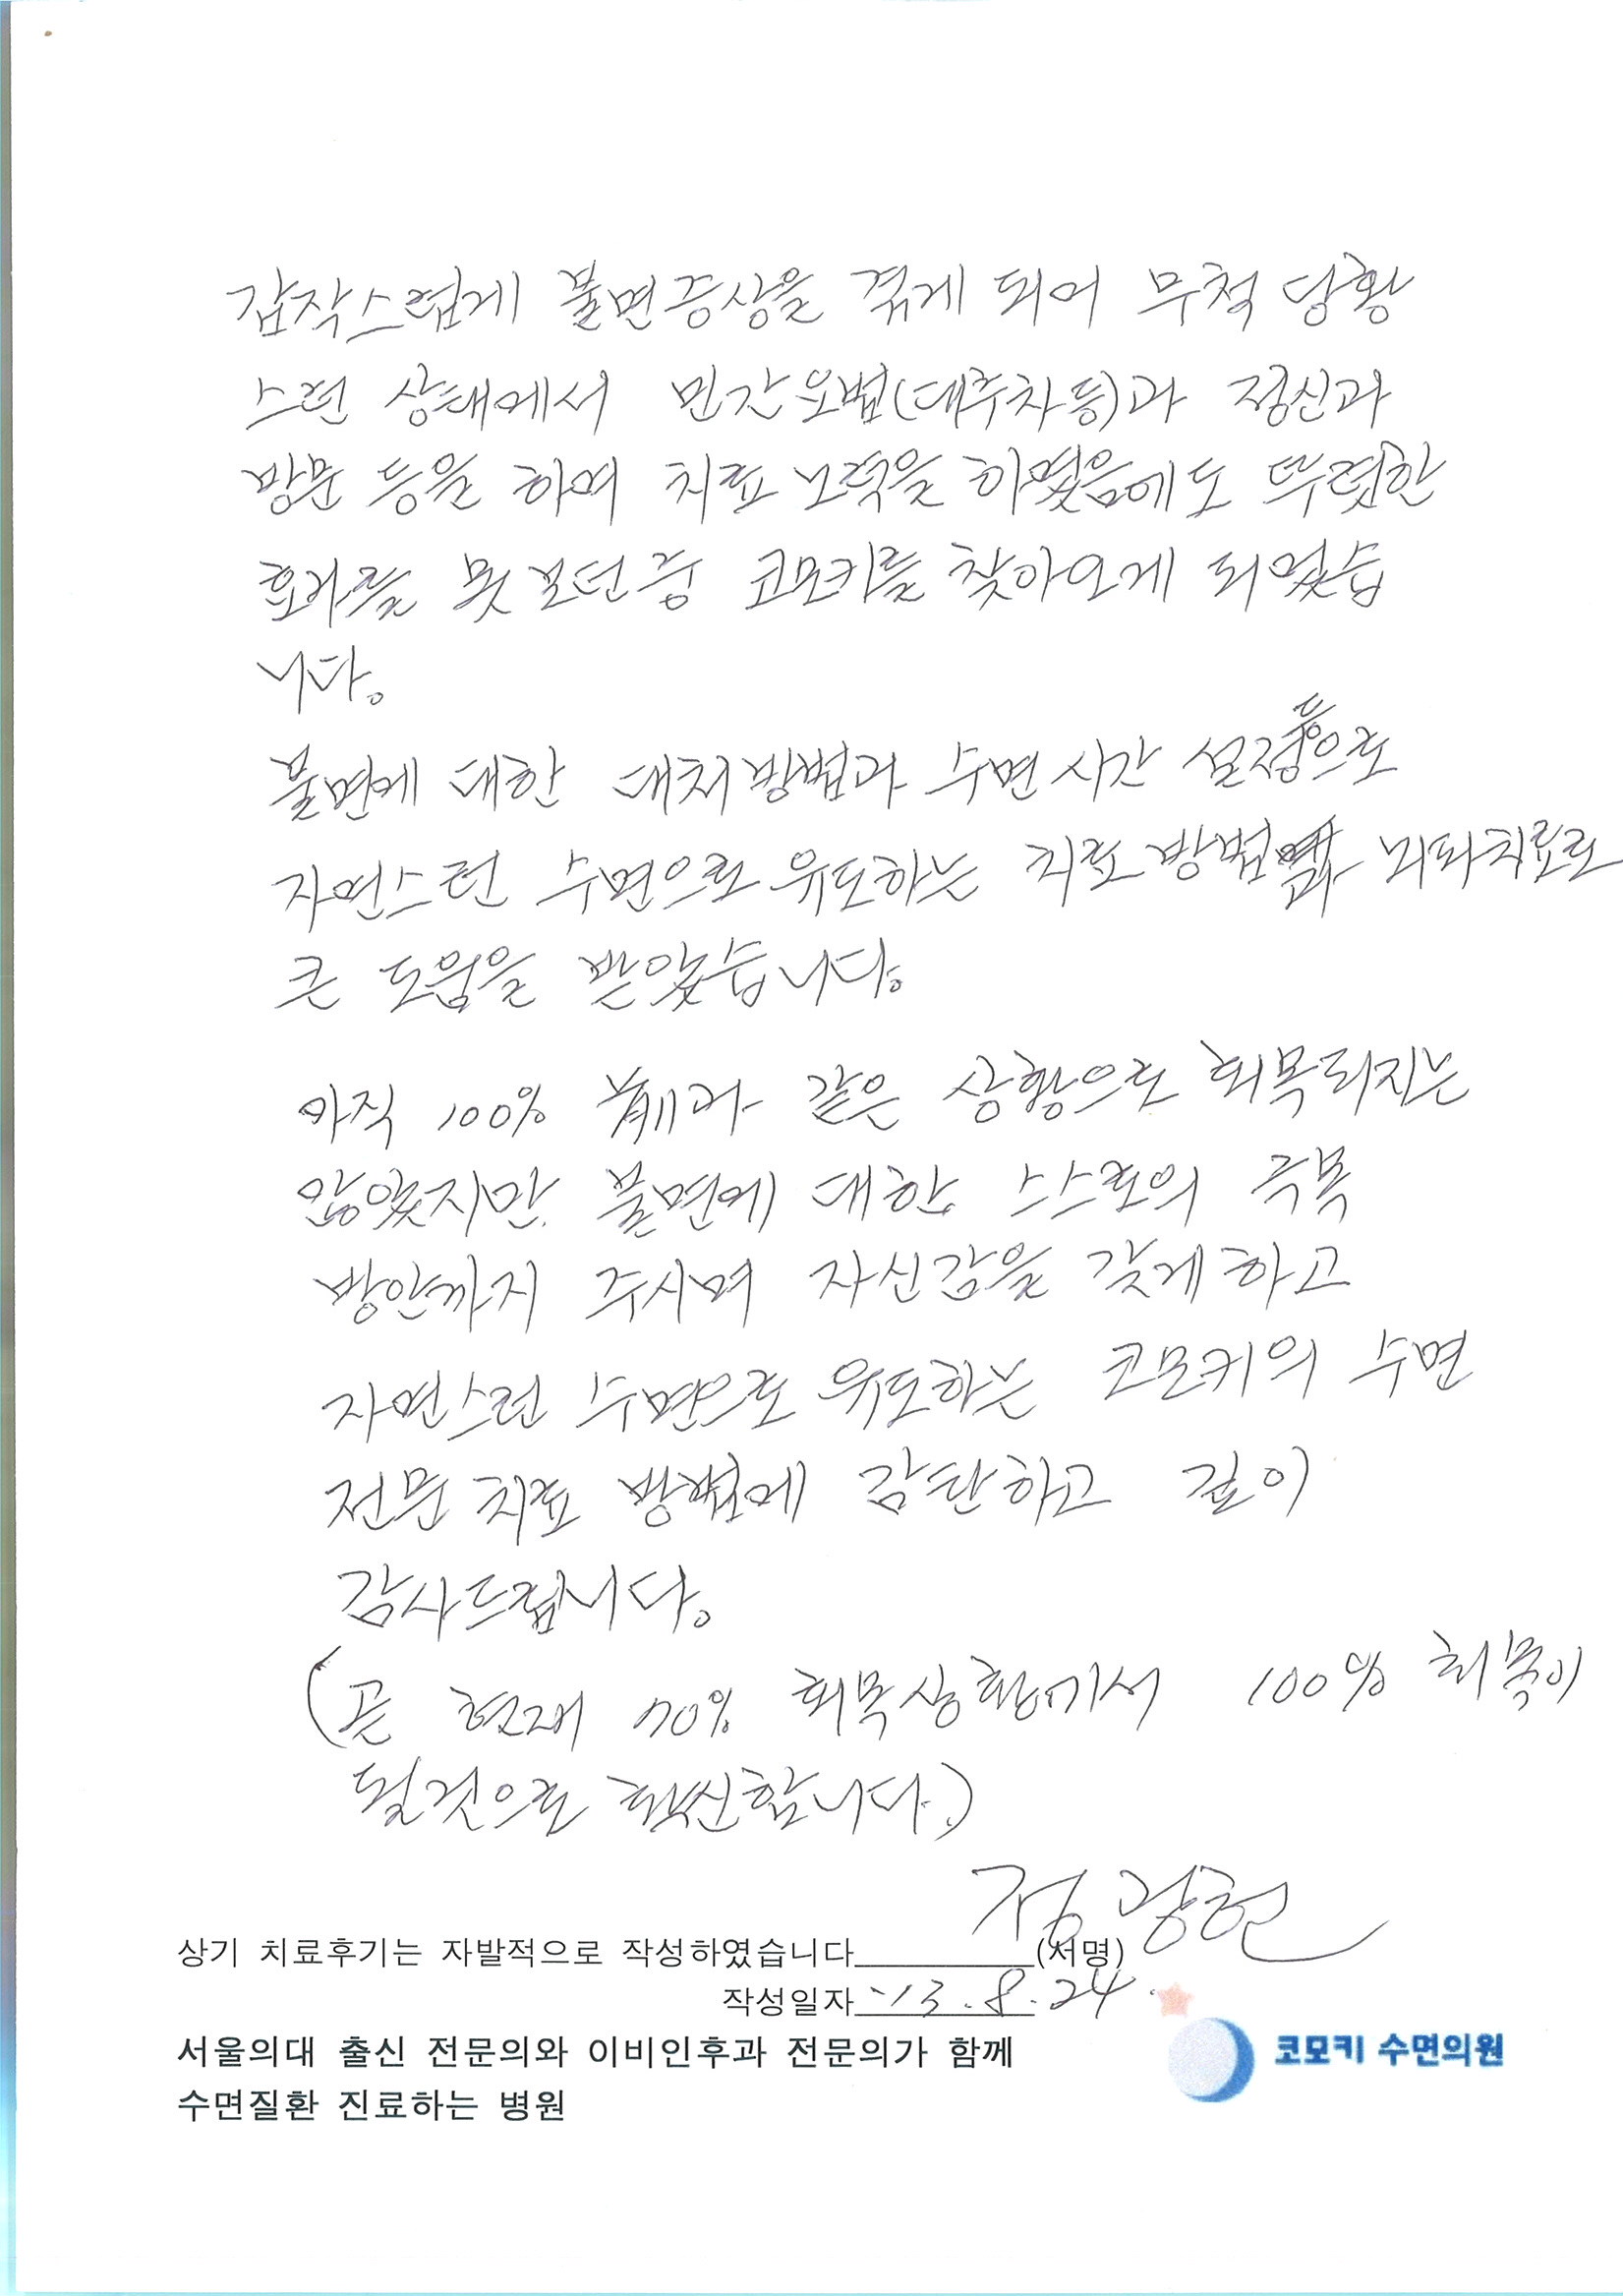 갑작스럽게 불면증상을 겪게 되어 무척 당황
스런 상태에서 민간요법(대추차 등)과 정신과
방문 등을 하며 치료 노력을 하였음에도 뚜렷한
효과를 못보던중 코모키를 찾아오게 되었습
니다.
불면에 대한 대처방법과 수면시간 설정등으로
자연스런 수면으로 유도하는 치료방법과 뇌파치료로
큰 도움을 받았습니다.
아직 100% 예전과 같은 상황으로 회복되지는
않았지만 불면에 대한 스스로의 극복
방안까지 주시며 자신감을 갖게하고
자연스런 수면으로 유도하는 코모키의 수면
전문 치료 방법에 감탄하고 깊이
감사드립니다.
(곧 현재 70% 회복상황에서 100% 회복이
될것으로 확신합니다.)
상기 치료후기는 자발적으로 작성하였습니다 (서명)
작성일자 '13.8.24.
서울의대 출신 전문의와 이비인후과 전문의가 함께
수면질환 진료하는 병원
코모키 수면의원